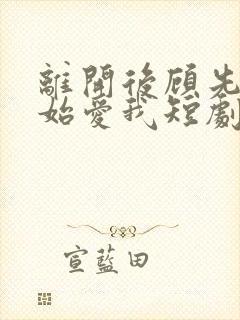 離開後顧先
始愛我短劇
宣藍田